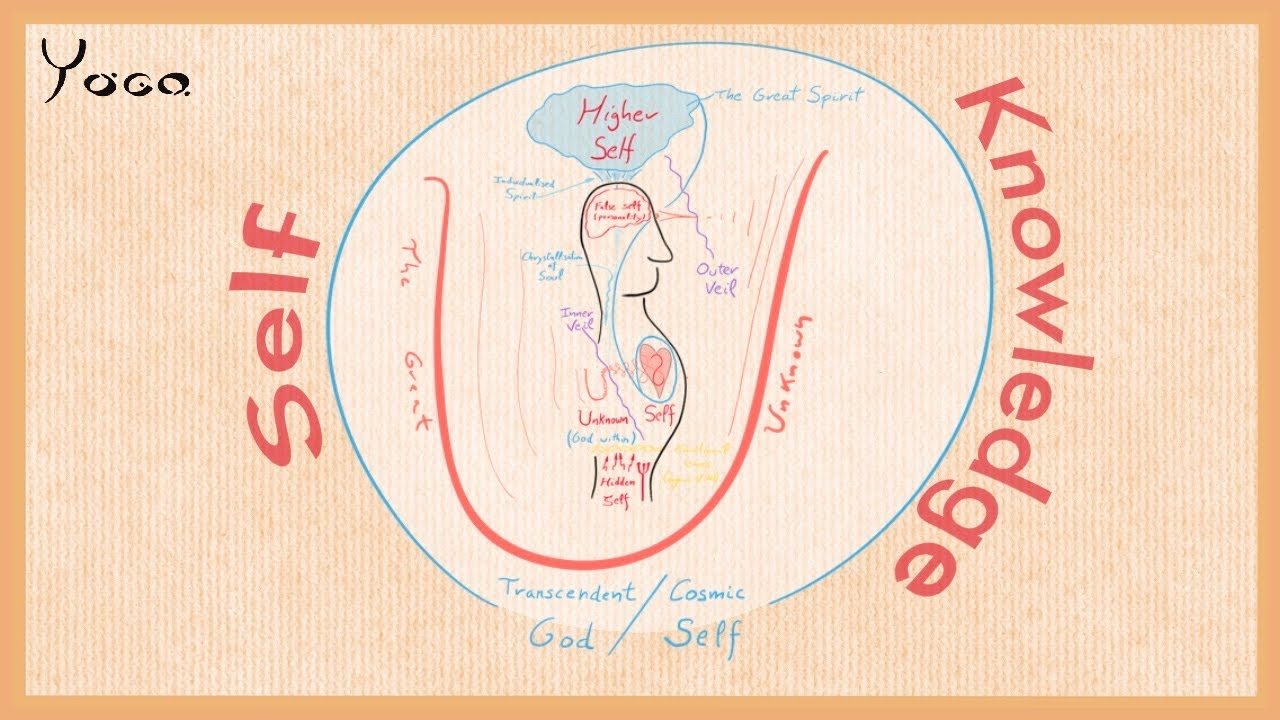 Yoga
Self
Knowledge
Higher
Self
The Great Spirit
Individualised
Spirit
False self
(personality)
Chrystallisation
of
Soul
Outer
Veil
Inner
Veil
The Great
Unknown
Unknown
(God within)
Self
Hidden
Self
Transcendent / Cosmic
God / Self